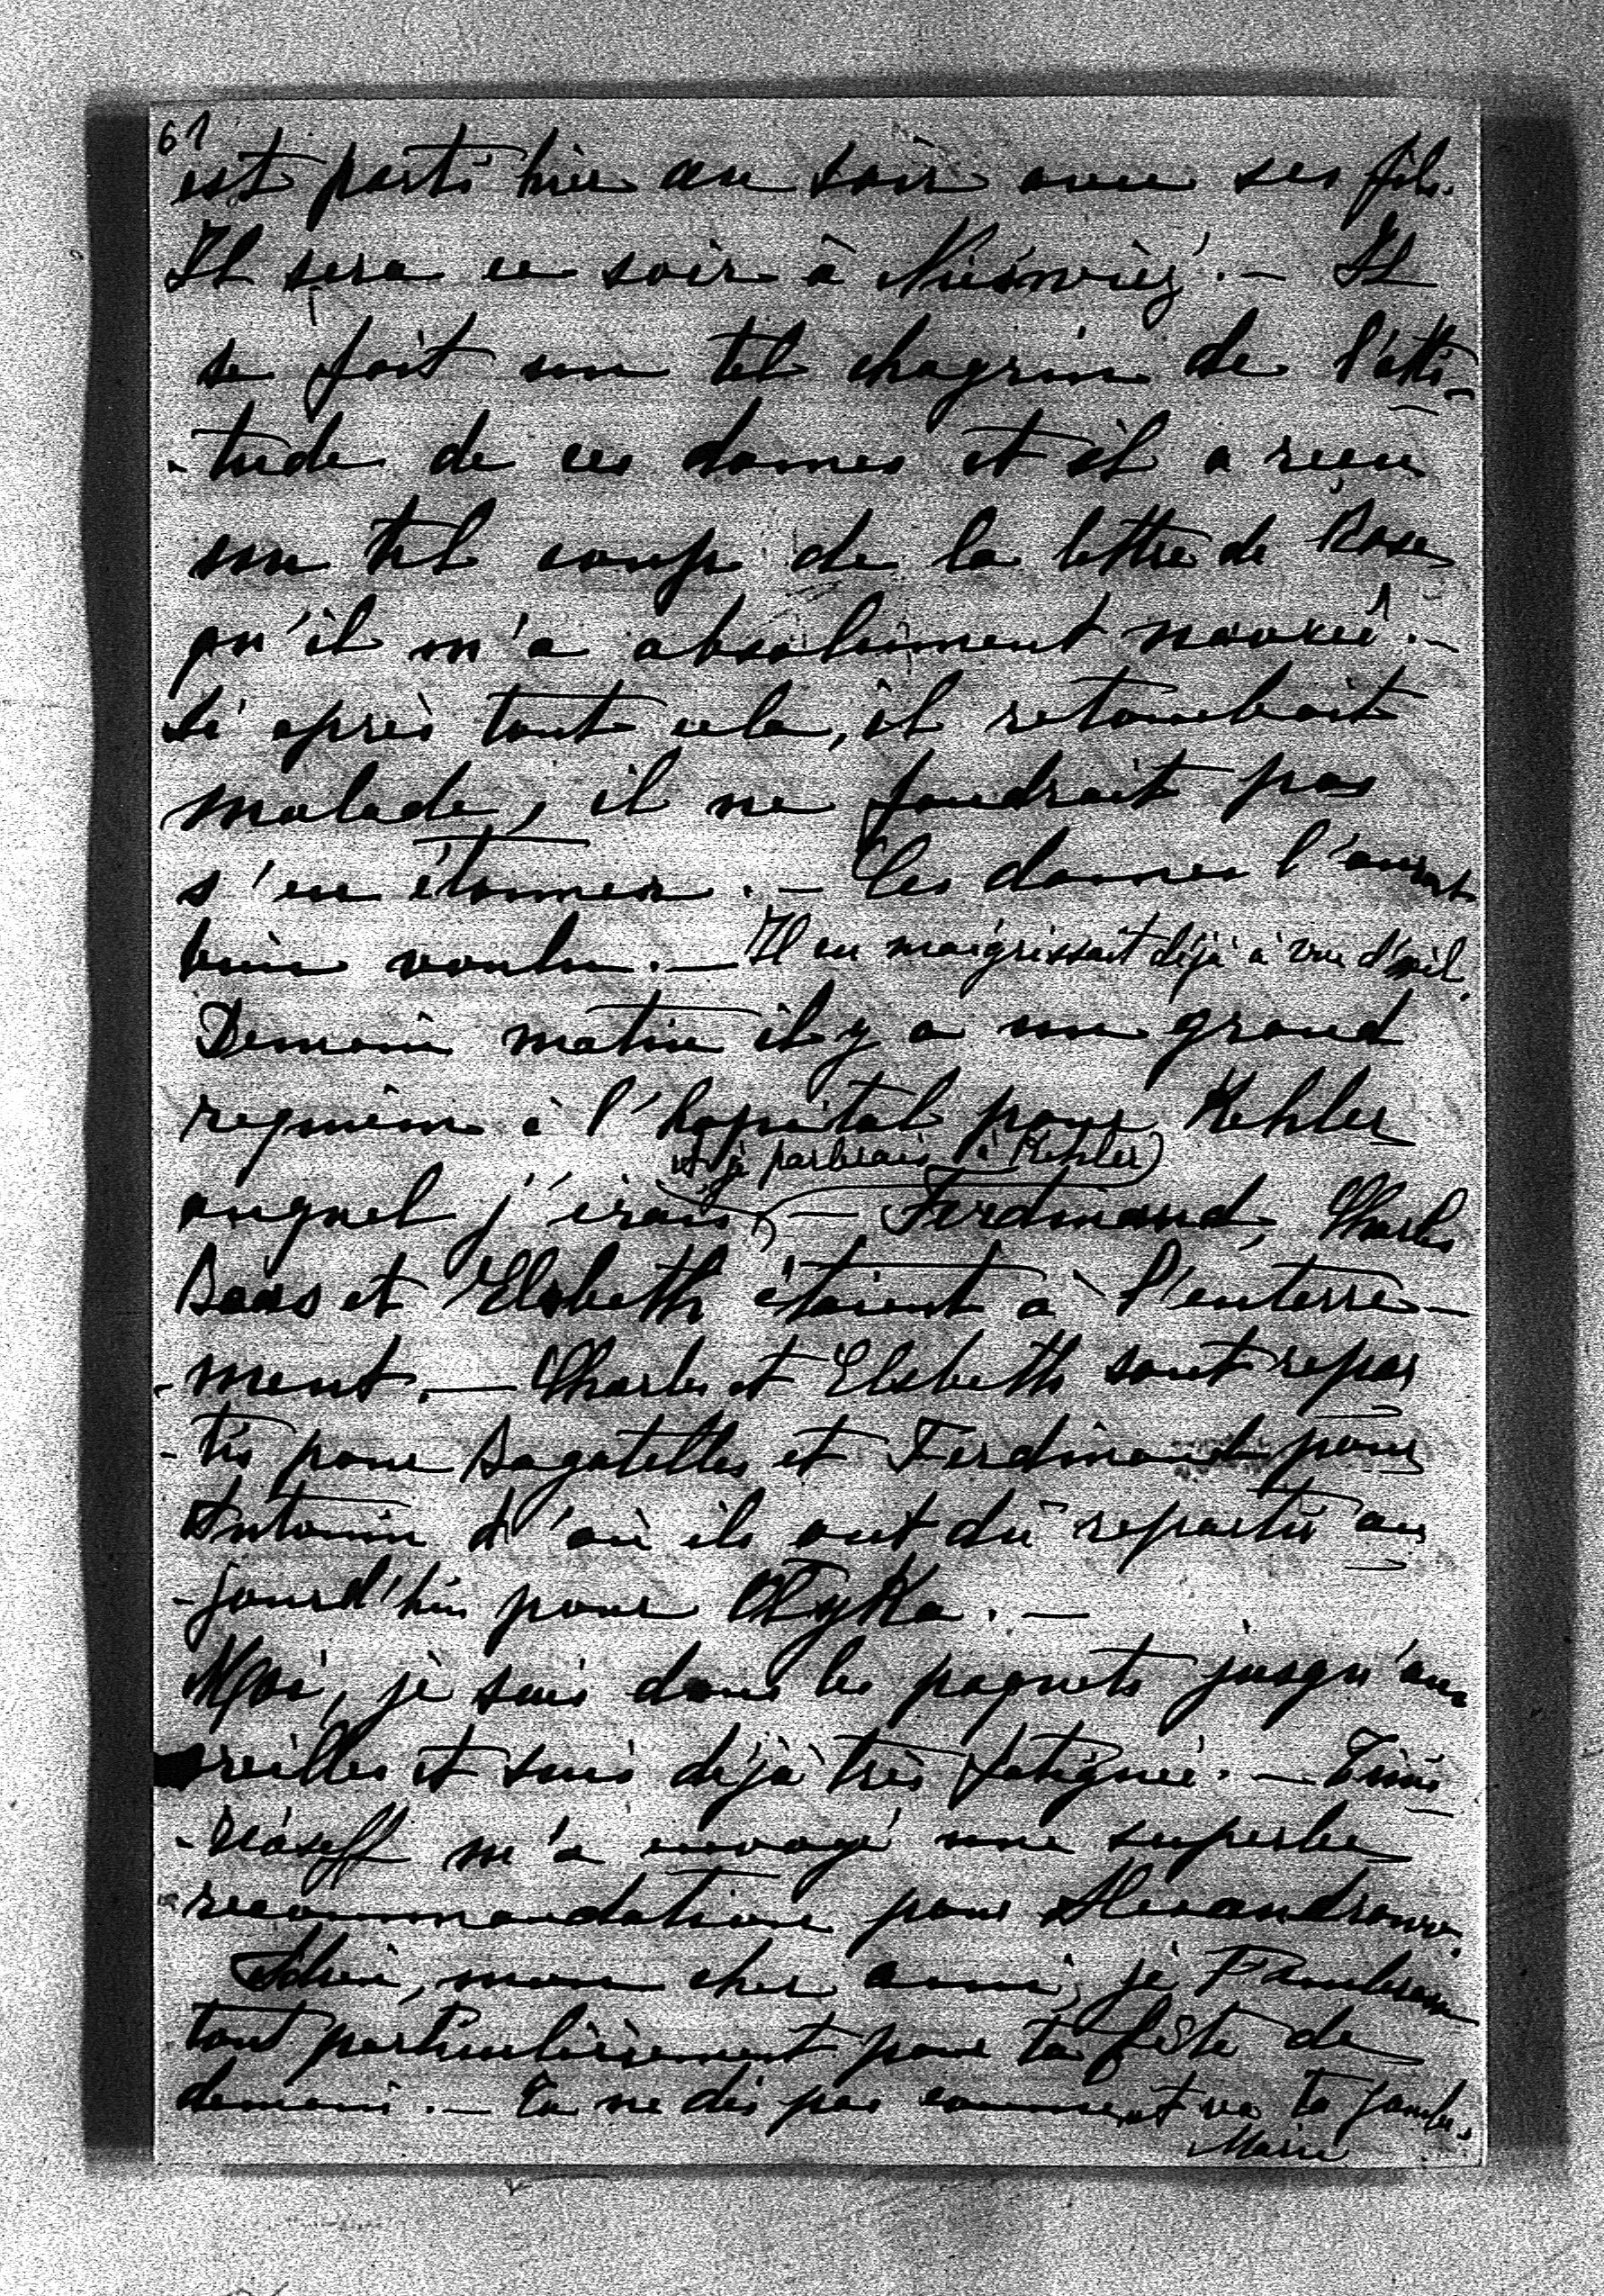 61
est parti hier au soir avec ses fils.
Il sera ce soir à Nieśwież. — Il
se fait un tel chagrin de l'atti-
-tude de ces dames et il a recu
un tel coup de la lettre de Rose
qu'il m'a absolument navrée. —
Si après tout cela, il retombait
malade, il ne faudrait pas
s'en étonner. — Ces dames l'auront
bien voulu. — Il en maigrissait déjà à vue d'œil.
Demain matin il y a un grand
requiem à l'hopital pour Kehler
auquel j'irais, — Ferdinand, Charles
et je parlerais à Kehler)
et Elsbeth étaient à l'enterre-
-ment. — Charles et Elsbeth sont repar
-tis pour Bagatelles et Ferdinand pour
Antonin d'où ils ont dû repartir au
-jourd'hui pour Olyka. —
Moi, je suis dans les paquets jusqu'aux
oreilles et suis déjà très fatiguée. — Timi
-riaseff m'a envoyé une superbe
recommandation pour Alexandrowo.
Adieu, mon cher ami, je t'embrasse
tout particulièrement pour ta fête de
demain. — Tu ne dis pas comment va ta jambe.
Marie